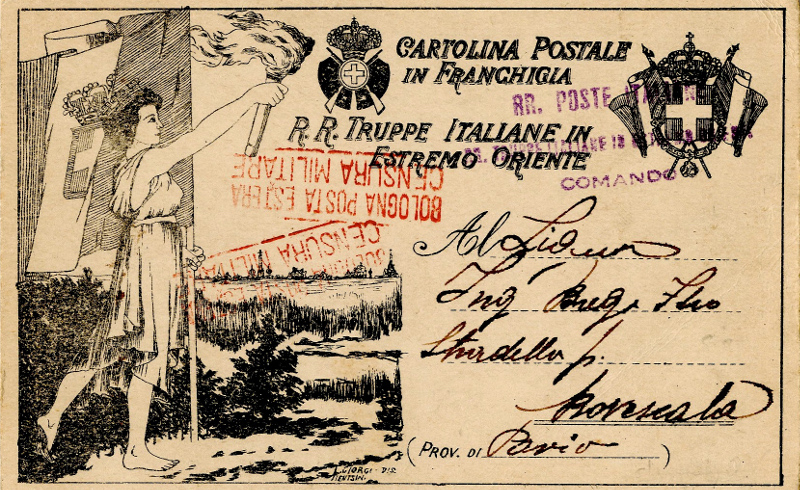 CARTOLINA POSTALE
IN FRANCHIGIA
R.R. TRUPPE ITALIANE IN
ESTREMO ORIENTE
RR. POSTE ITALIANE
RR. TRUPPE ITALIANE IN
COMANDO
BOLOGNA POSTA ESTERA
CENSURA MILITARE
BOLOGNA POSTA
CENSURA MILITARE
Al Signor
Ing
Stradella p.
Rovescala
(PROV. DI Pavia)
GIORGI - DIS
TIENTSIN.